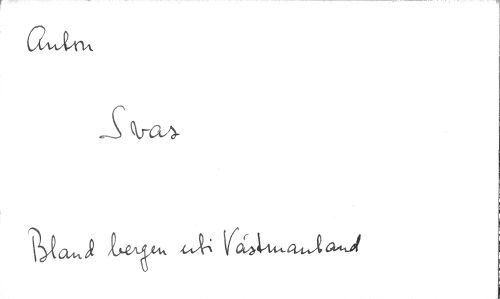 Anton
Svas
Bland bergen uti Västmanland